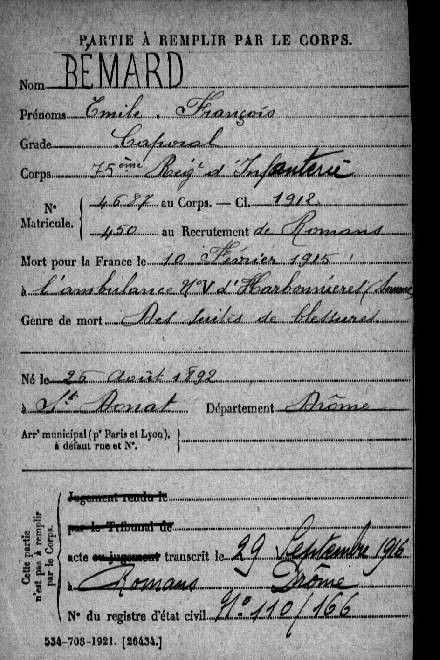 PARTIE À REMPLIR PAR LE CORPS.
Nom BÉMARD
Prénoms Emile. François
Grade Caporal
Corps 75ème Régt d'Infanterie
N° Matricule. 4687 au Corps. — Cl. 1912
450 au Recrutement de Romans
Mort pour la France le 10 Février 1915
à l'ambulance N°V d'Harbonnières (Somme)
Genre de mort Des suites de blessures
Né le 25 Août 1892
à St Donat Département Drôme
Arrt municipal (pr Paris et Lyon), à défaut rue et N°.
Cette partie n'est pas à remplir par le Corps.
Jugement rendu le
par le Tribunal de
acte ou jugement transcrit le 29 Septembre 1916
à Romans Drôme
N° du registre d'état civil N° 110/166
534-708-1921. [26434.]